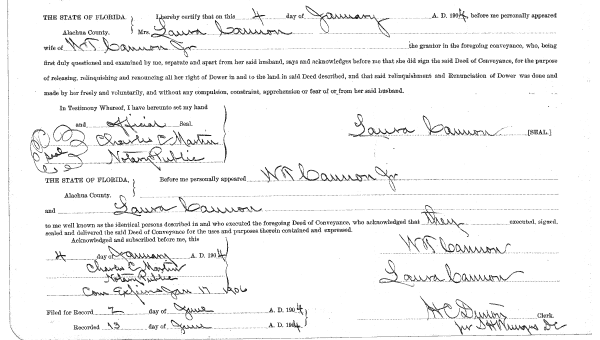 THE STATE OF FLORIDA, } I hereby certify that on this 4 day of January A. D. 1904, before me personally appeared
Alachua County. Mrs. Laura Cannon
wife of WR Cannon Jr the grantor in the foregoing conveyance, who, being
first duly questioned and examined by me, separate and apart from her said husband, says and acknowledges before me that she did sign the said Deed of Conveyance, for the purpose
of releasing, relinquishing and renouncing all her right of Dower in and to the land in said Deed described, and that said relinquishment and Renunciation of Dower was done and
made by her freely and voluntarily, and without any compulsion, constraint, apprehension or fear of or from her said husband.
In Testimony Whereof, I have hereunto set my hand
and official Seal.
Charles C Martin
Notary Public
seal
Laura Cannon [SEAL]
THE STATE OF FLORIDA, } Before me personally appeared WR Cannon Jr
Alachua County.
and Laura Cannon
to me well known as the identical persons described in and who executed the foregoing Deed of Conveyance, who acknowledged that they executed, signed,
sealed and delivered the said Deed of Conveyance for the uses and purposes therein contained and expressed.
Acknowledged and subscribed before me, this
4 day of January A. D. 1904
Charles C. Martin
Notary Public
Com Expires Jan 17 1906
WR Cannon
Laura Cannon
Filed for Record 2 day of June A. D. 1904
Recorded 13 day of June A. D. 1904
Clerk.